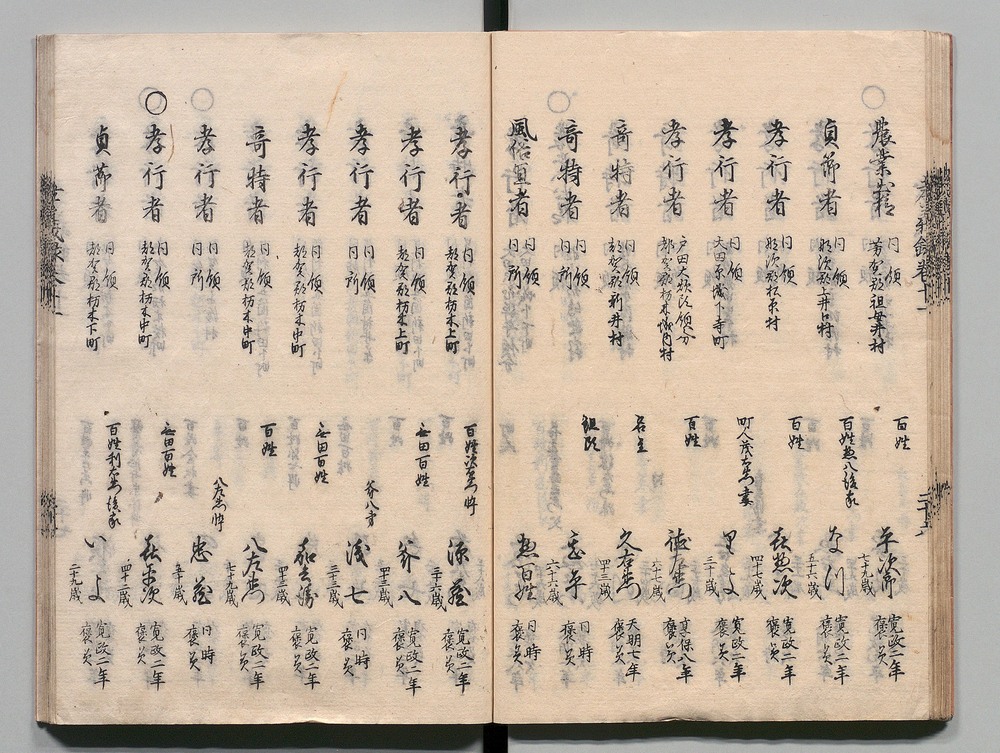 孝義録巻十一
○ 農業出精 同領 芳賀郡祖母井村 百姓 平次郎 七十九歳 寛政二年 褒美
貞節者 同領 那須郡上井口村 百姓惣八後家 なつ 五十六歳 寛政二年 褒美
孝行者 同領 那須郡 百姓 喜惣次 四十七歳 寛政二年 褒美
孝行者 同領 大田原城下寺町 町人茂右衛門妻 りよ 三十歳 寛政二年 褒美
孝行者 戸田大炊頭領分 都賀郡栃木城内村 百姓 徳右衛門 六十七歳 享保八年 褒美
奇特者 同領 都賀郡新井村 名主 久右衛門 四十三歳 天明七年 褒美
○ 奇特者 同領 同所 組頭 忠平 六十六歳 同時 褒美
風俗宜者 同領 同所 惣百姓 同時 褒美
孝行者 同領 都賀郡栃木上町 百姓次右衛門忰 源蔵 三十六歳 寛政二年 褒美
孝行者 同領 都賀郡栃木上町 無田百姓 斧八 寛政二年 褒美
孝行者 同領 同所 斧八弟 浅七 三十三歳 同時 褒美
孝行者 同領 都賀郡栃木中町 無田百姓 四十三歳 寛政二年 褒美
奇特者 同領 都賀郡栃木中町 百姓 八右衛門 七十九歳 寛政二年 褒美
○ 孝行者 同領 同所 八右衛門忰 忠蔵 五十歳 同時 褒美
○ 孝行者 同領 都賀郡栃木中町 無田百姓 喜平次 四十二歳 寛政二年 褒美
貞節者 同領 都賀郡栃木下町 百姓利右衛門後家 いよ 二十九歳 寛政二年 褒美